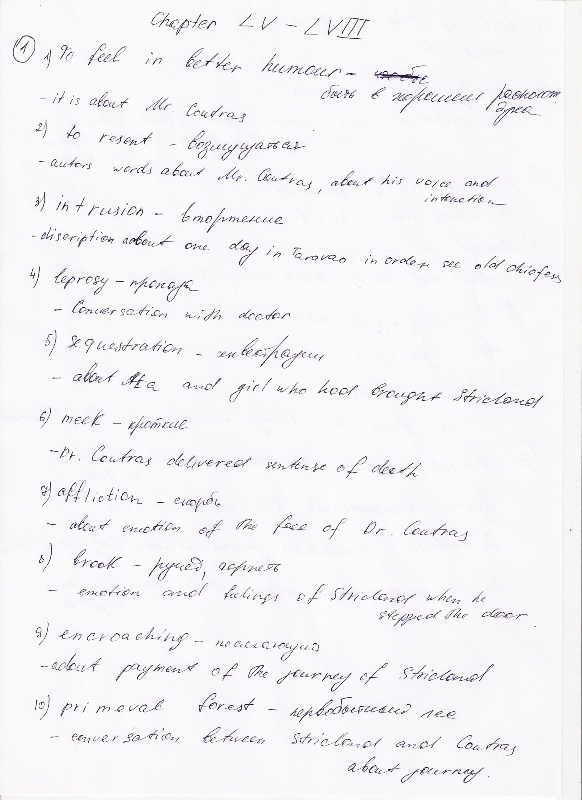 Chapter LV – LVIII
① 1) To feel in better humour –
быть в хорошем располож.
духа
- it is about Mr. Coutras
2) to resent – возмущаться
- autors words about Mr. Coutras, about his voice and
intenction
3) intrusion – вторжение
- discription about one day in Taravao in order see old chiefess
4) leprosy – проказа
- Conversation with doctor
5) sequestration – секвестрации
- about Ata and girl who had brought Stricland
6) meek – кроткие
- Dr. Coutras delivered sentense of death
7) affliction – скорбь
- about emotion of the face of Dr. Coutras
8) brook – ручей, терпеть
- emotion and felings of Stricland when he
stepped the door.
9) encroaching – посягающий
- about payment of the journey of Stricland
10) primeval forest – первобытный лес
- conversation between Stricland and Coutras
about journey.